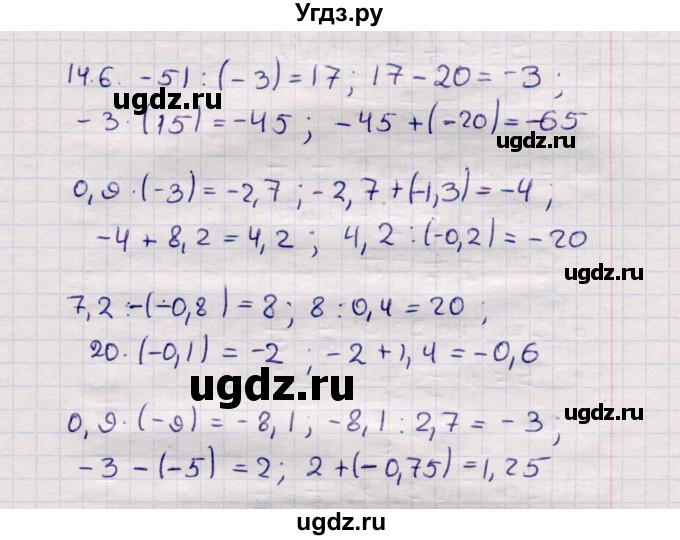 Угдз.ру
14.6. -51 : (-3) = 17; 17 - 20 = -3;
ugdz.ru
ugdz.ru
-3 · (15) = -45; -45 + (-20) = -65
0,9 · (-3) = -2,7; -2,7 + (-1,3) = -4;
-4 + 8,2 = 4,2; 4,2 : (-0,2) = -20
ugdz.ru
7,2 : -(-0,8) = 8; 8 : 0,4 = 20;
20 · (-0,1) = -2; -2 + 1,4 = -0,6
ugdz.ru
ugdz.ru
0,9 · (-9) = -8,1; -8,1 : 2,7 = -3;
-3 - (-5) = 2; 2 + (-0,75) = 1,25
ugdz.ru
ugdz.ru